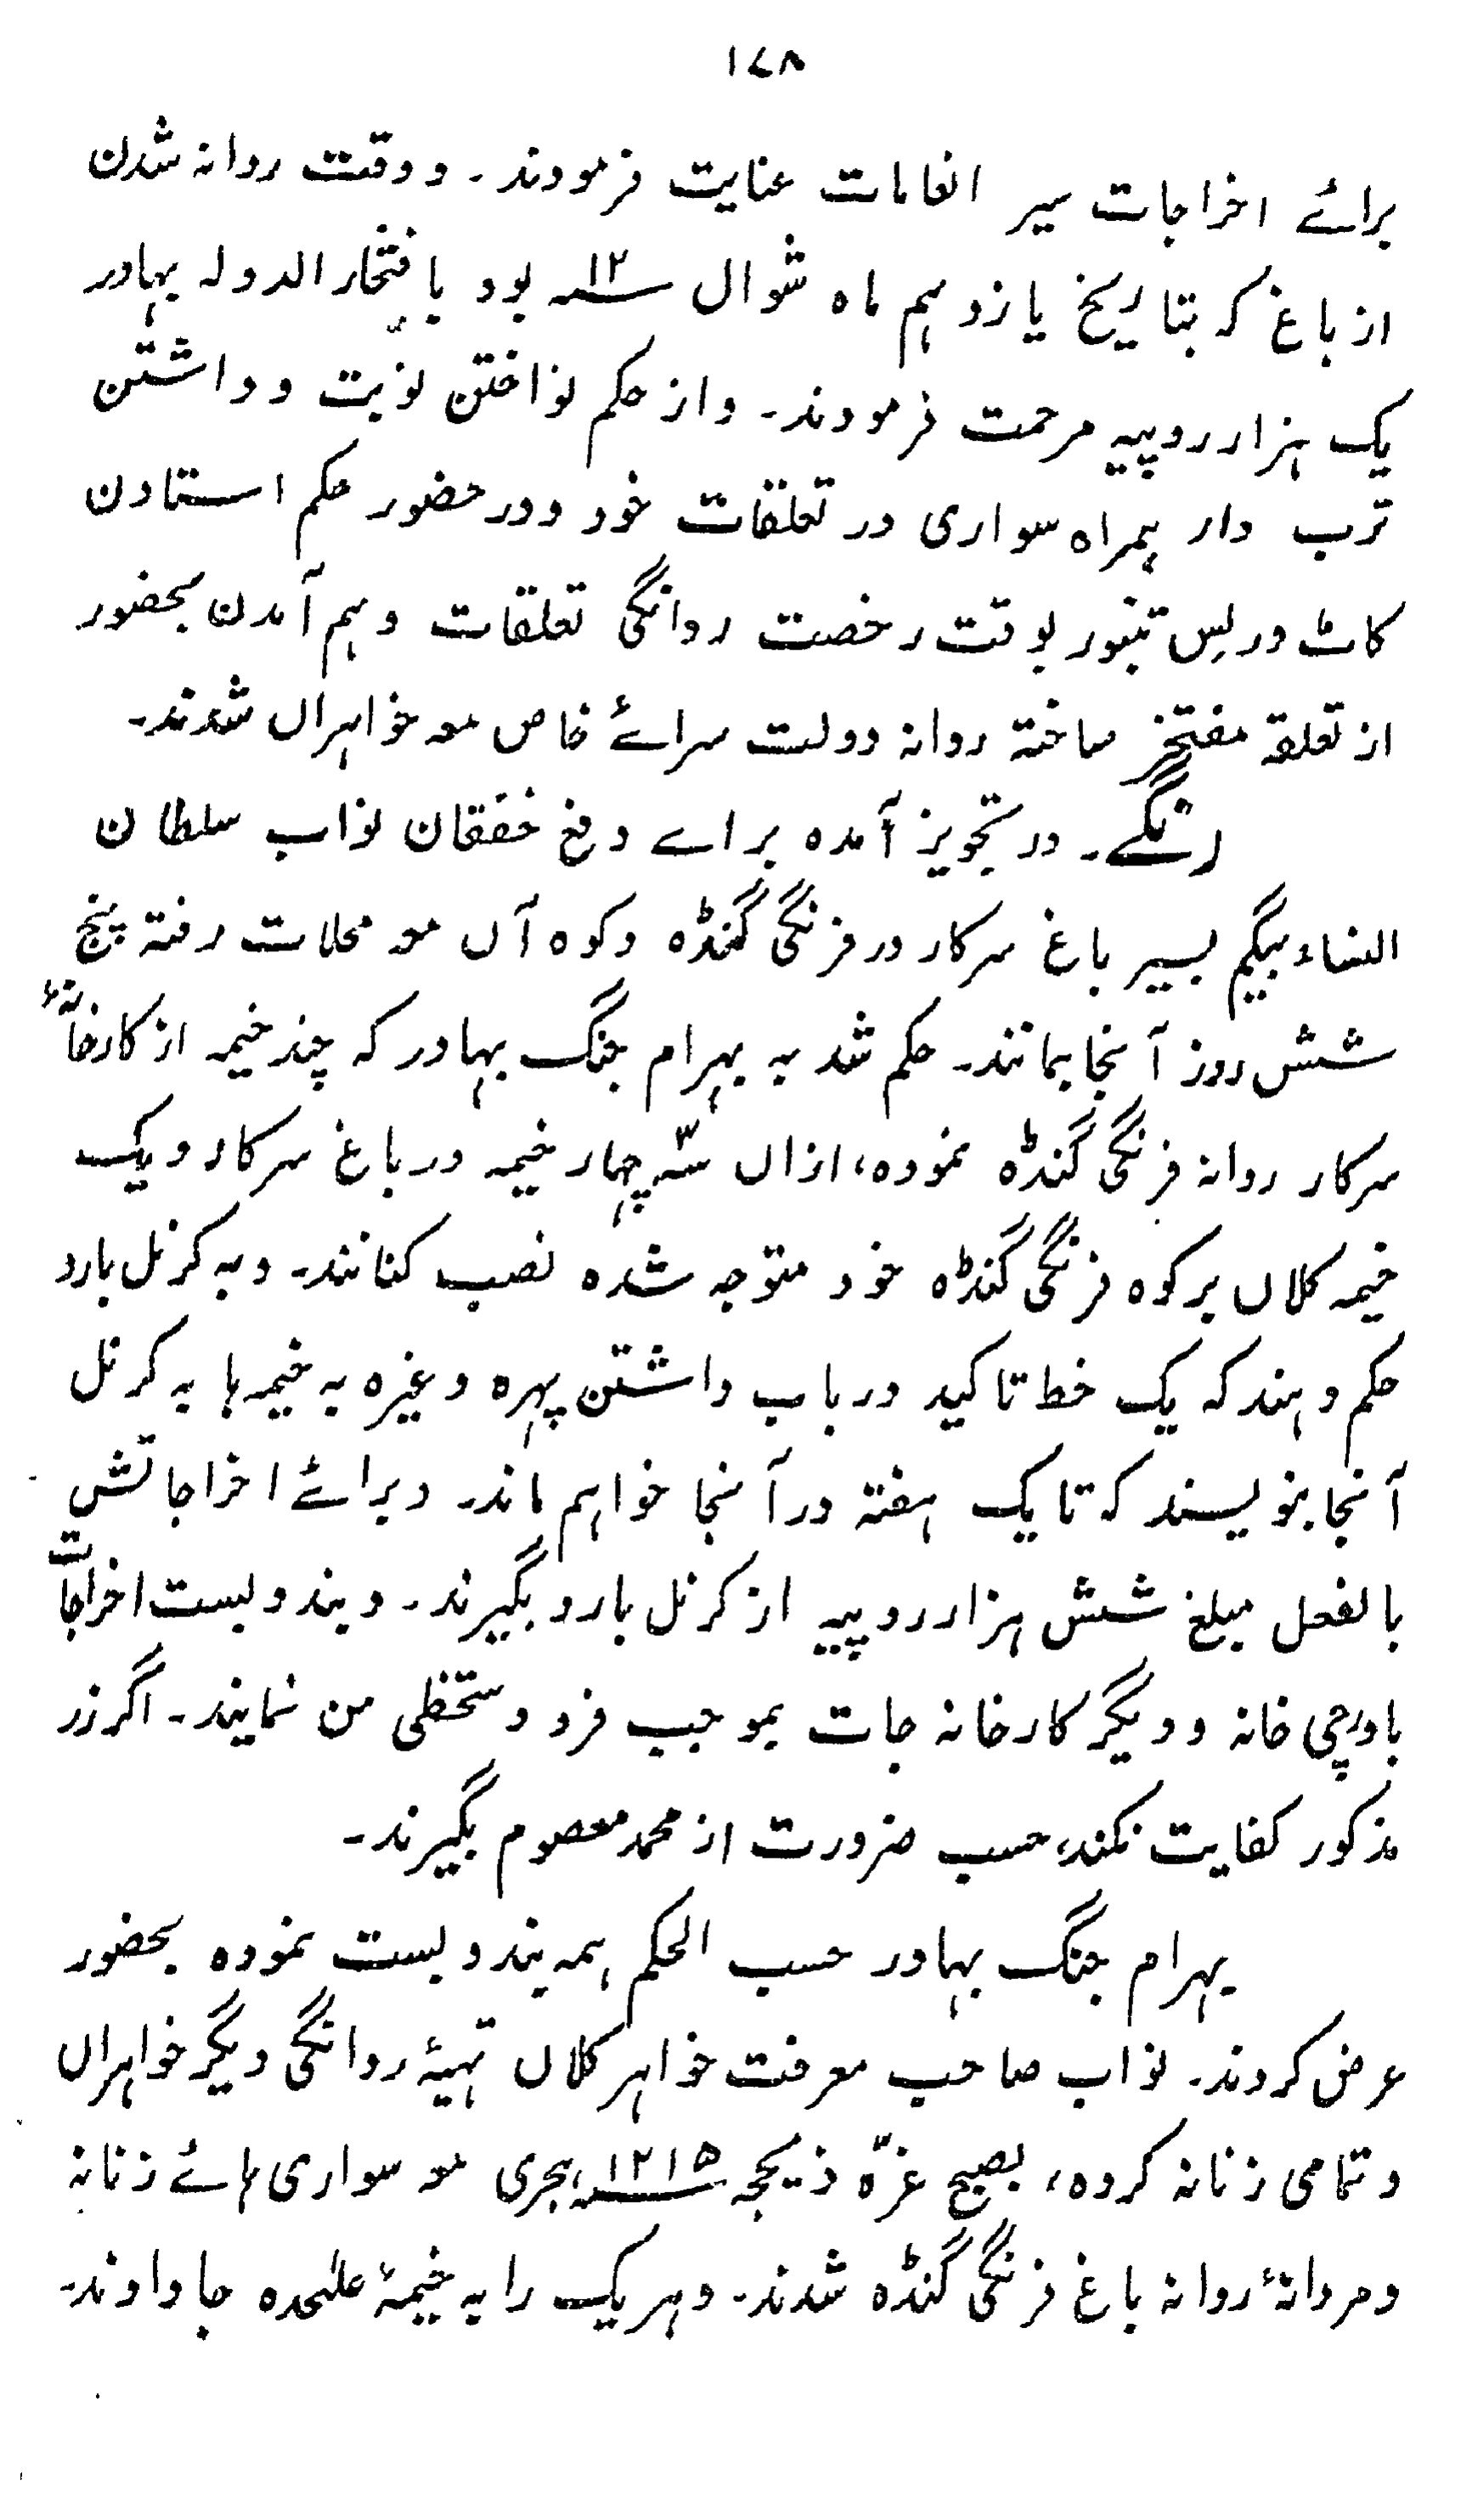 ۱۷۸
برائے اخراجات سیر انعامات عنایت فرمودند۔ و وقت روانہ شدن
از باغ کہ بتاریخ یازدہم ماہ شوال سنہ ۱۲ بود بافتخار الدولہ بہادر
یک ہزار روپیہ مرحمت فرمودند۔ و از حکم نواختن نوبت و داشتن
ترب دار ہمراہ سواری در تعلقات خود و در حضور حکم استادن
کاٹ و ریس تنبور بوقت رخصت روانگی تعلقات و ہم آمدن بحضور
از تعلقہ مفتخر ساختہ روانہ دولت سرائے خاص مع خواہراں شدند۔
انگے۔ در تجویز آمدہ برائے دفع خفقان نواب سلطان
النساء بیگم بسیر باغ سرکار در فرنگی گنڈہ و کوہ آں مع محلات رفتہ پنج
شش روز آنجا بمانند۔ حکم شد بہ بہرام جنگ بہادر کہ چند خیمہ از کارخانۂ
سرکار روانہ فرنگی گنڈہ نمودہ، ازاں سہ چہار خیمہ در باغ سرکار و یک
خیمہ کلاں بر کوہ فرنگی گنڈہ خود متوجہ شدہ نصب کنانند۔ و بہ کرنل بارد
حکم دہند کہ یک خط تاکید در باب داشتن پہرہ وغیرہ بہ خیمہ ہا بہ کرنل
آنجا بنویسند کہ تا یک ہفتہ در آنجا خواہم ماند۔ و برائے اخراجاتش
بالفعل مبلغ شش ہزار روپیہ از کرنل بارد بگیرند۔ و بندوبست اخراجات
باورچی خانہ و دیگر کارخانہ جات بموجب فرد دستخطی من نمایند۔ اگر زر
مذکور کفایت نکند، حسب ضرورت از محمد معصوم بگیرند۔
بہرام جنگ بہادر حسب الحکم ہمہ بندوبست نمودہ بحضور
عرض کردند۔ نواب صاحب معرفت خواہر کلاں تہیۂ روانگی دیگر خواہراں
و تمامی زنانہ کردہ، بصبح غرّہ ذیحجہ سنہ ۱۲۱۵ ہجری مع سواری ہائے زنانہ
و مردانۂ روانہ باغ فرنگی گنڈہ شدند۔ و ہر یک را بہ خیمۂ علٰحدہ جا دادند۔